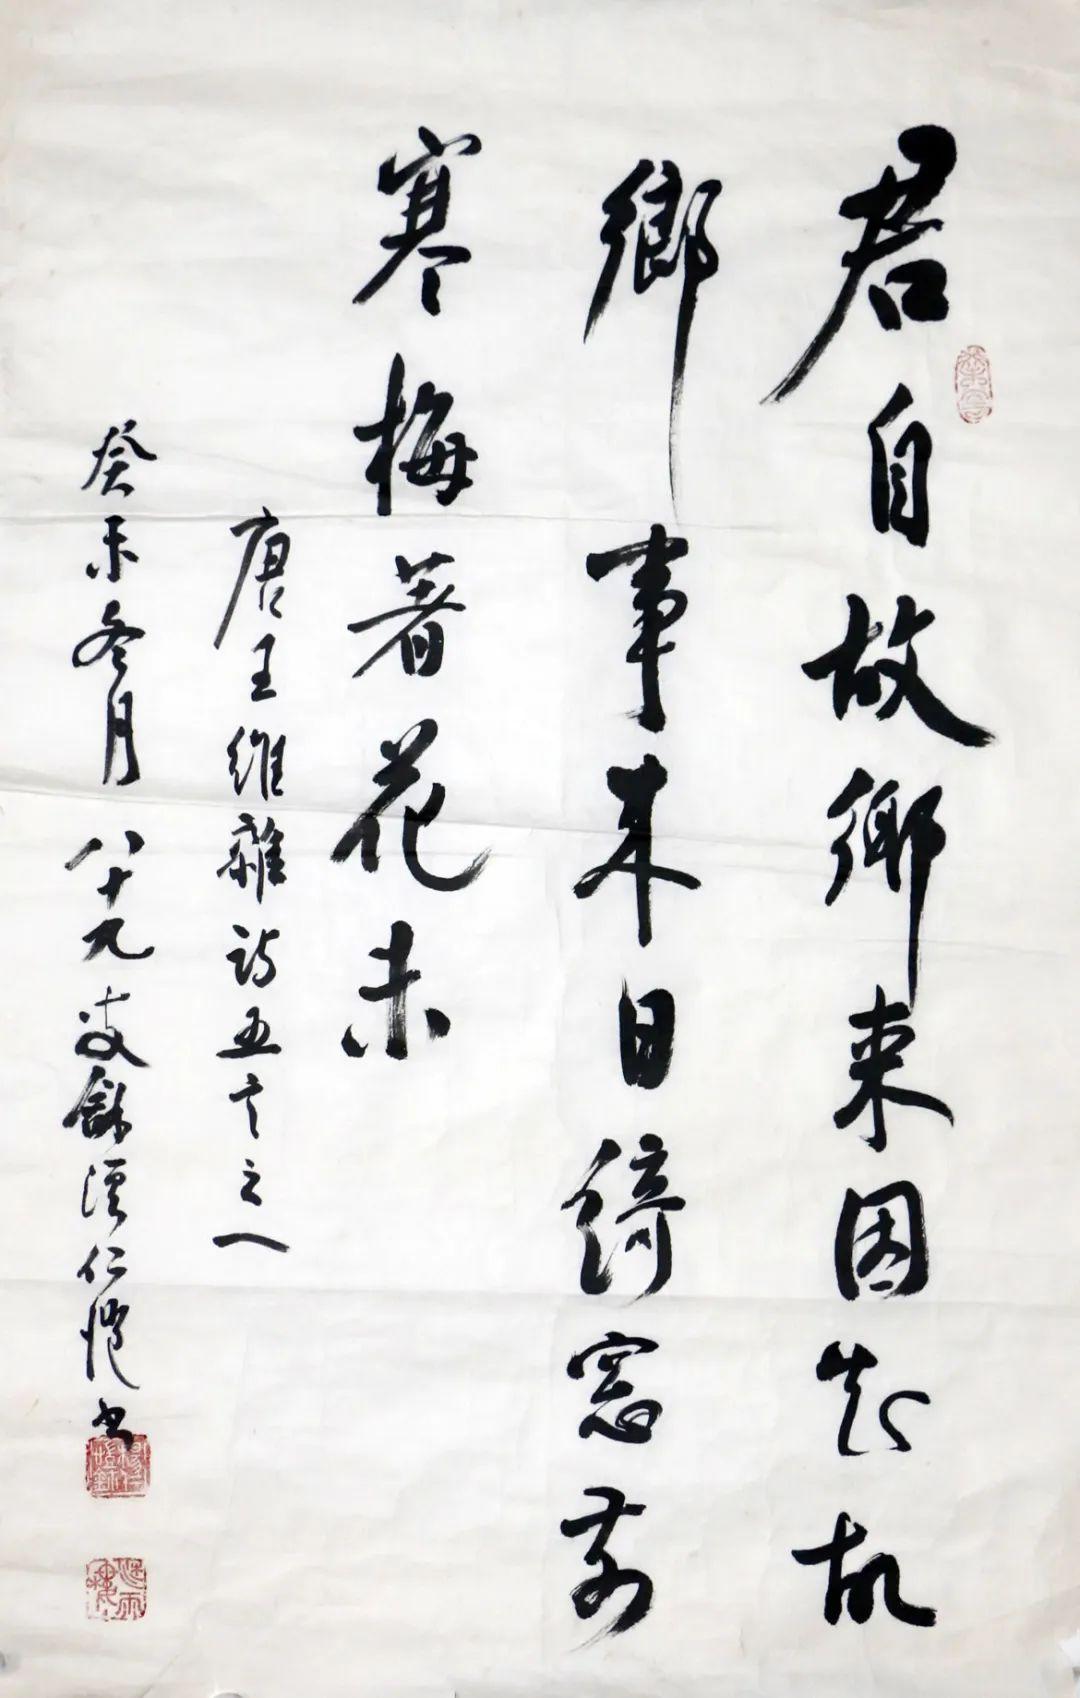 君自故鄉來因知故
鄉事來日綺窓前
寒梅著花未
唐王維雜詩五言之一
癸未冬月八十九叟龢溪仁愷书